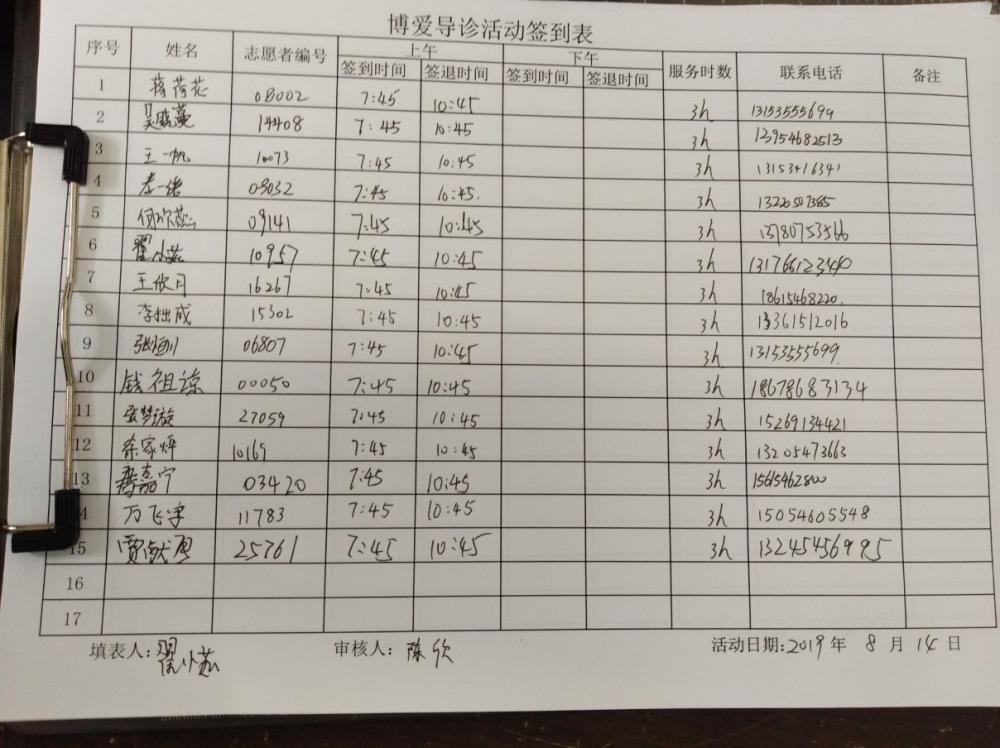 博爱导诊活动签到表
序号 姓名 志愿者编号 上午 下午 服务时数 联系电话 备注
签到时间 签退时间 签到时间 签退时间
1 蒋荷花 08002 7:45 10:45 3h 13153555699
2 吴晓蔓 14408 7:45 10:45 3h 13954682513
3 王一帆 10073 7:45 10:45 3h 13153416341
4 08032 7:45 10:45. 3h 13220507385
5 09141 7:45 10:45 3h 13780753566
6 翟小燕 10957 7:45 10:45 3h
7 王欣月 16267 7:45 10:45 3h 18615468220.
8 李拙成 15302 7:45 10:45 3h 13361512016
9 06807 7:45 10:45 3h 13153555699.
10 钱祖谅 00050 7:45 10:45 3h 18678683134
11 张梦漩 27059 7:45 10:45 3h 15269134421
12 徐家烨 10169 7:45 10:45 3h 13205473663
13 嘉宁 03420 7:45 10:45 3h 15615462800
4 万飞宇 11783 7:45 10:45 3h 15054605548
15 贾献勇 25761 7:45 10:45 3h 13245456995
16
17
填表人:翟小燕 审核人: 陈欣 活动日期:2019年 8 月 14 日